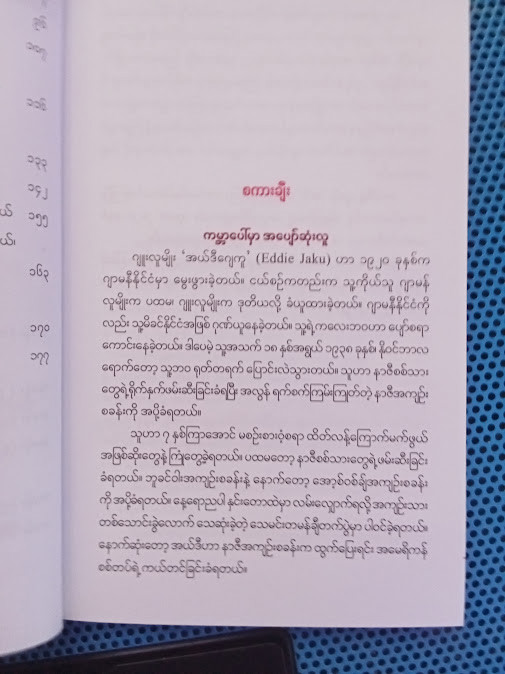 ၁၀၇
၁၁၆
၁၃၃
၁၄၂
ယ် ၁၅၅
ယ်၊
၁၆၃
၁၇၀
၁၇၇
စကားချီး
ကမ္ဘာပေါ်မှာ အပျော်ဆုံးလူ
ဂျူးလူမျိုး ‘အယ်ဒီဂျေကူ’ (Eddie Jaku) ဟာ ၁၉၂၀ ခုနှစ်က
ဂျာမနီနိုင်ငံမှာ မွေးဖွားခဲ့တယ်။ ငယ်စဉ်ကတည်းက သူ့ကိုယ်သူ ဂျာမန်
လူမျိုးက ပထမ၊ ဂျူးလူမျိုးက ဒုတိယလို့ ခံယူထားခဲ့တယ်။ ဂျာမနီနိုင်ငံကို
လည်း သူ့မိခင်နိုင်ငံအဖြစ် ဂုဏ်ယူနေခဲ့တယ်။ သူ့ရဲ့ကလေးဘဝဟာ ပျော်စရာ
ကောင်းနေခဲ့တယ်။ ဒါပေမဲ့ သူ့အသက် ၁၈ နှစ်အရွယ် ၁၉၃၈ ခုနှစ်၊ နိုဝင်ဘာလ
ရောက်တော့ သူ့ဘဝ ရုတ်တရက် ပြောင်းလဲသွားတယ်။ သူဟာ နာဇီစစ်သား
တွေရဲ့ရိုက်နှက်ဖမ်းဆီးခြင်းခံရပြီး အလွန် ရက်စက်ကြမ်းကြုတ်တဲ့ နာဇီအကျဉ်း
စခန်းကို အပို့ခံရတယ်။
သူဟာ ၇ နှစ်ကြာအောင် မစဉ်းစားဝံ့စရာ ထိတ်လန့်ကြောက်မက်ဖွယ်
အဖြစ်ဆိုးတွေနဲ့ ကြုံတွေ့ခဲ့ရတယ်။ ပထမတော့ နာဇီစစ်သားတွေရဲ့ဖမ်းဆီးခြင်း
ခံရတယ်။ ဘူခင်ဝါးအကျဉ်းစခန်းနဲ့ နောက်တော့ အော့စ်ဝစ်ချ်အကျဉ်းစခန်း
ကို အပို့ခံရတယ်။ နေ့ရောညပါ နှင်းတောထဲမှာ လမ်းလျှောက်ရလို့ အကျဉ်းသား
တစ်သောင်းခွဲလောက် သေဆုံးခဲ့တဲ့ သေမင်းတမန်ချီတက်ပွဲမှာ ပါဝင်ခဲ့ရတယ်။
နောက်ဆုံးတော့ အယ်ဒီဟာ နာဇီအကျဉ်းစခန်းက ထွက်ပြေးရင်း အမေရိကန်
စစ်တပ်ရဲ့ ကယ်တင်ခြင်းခံရတယ်။